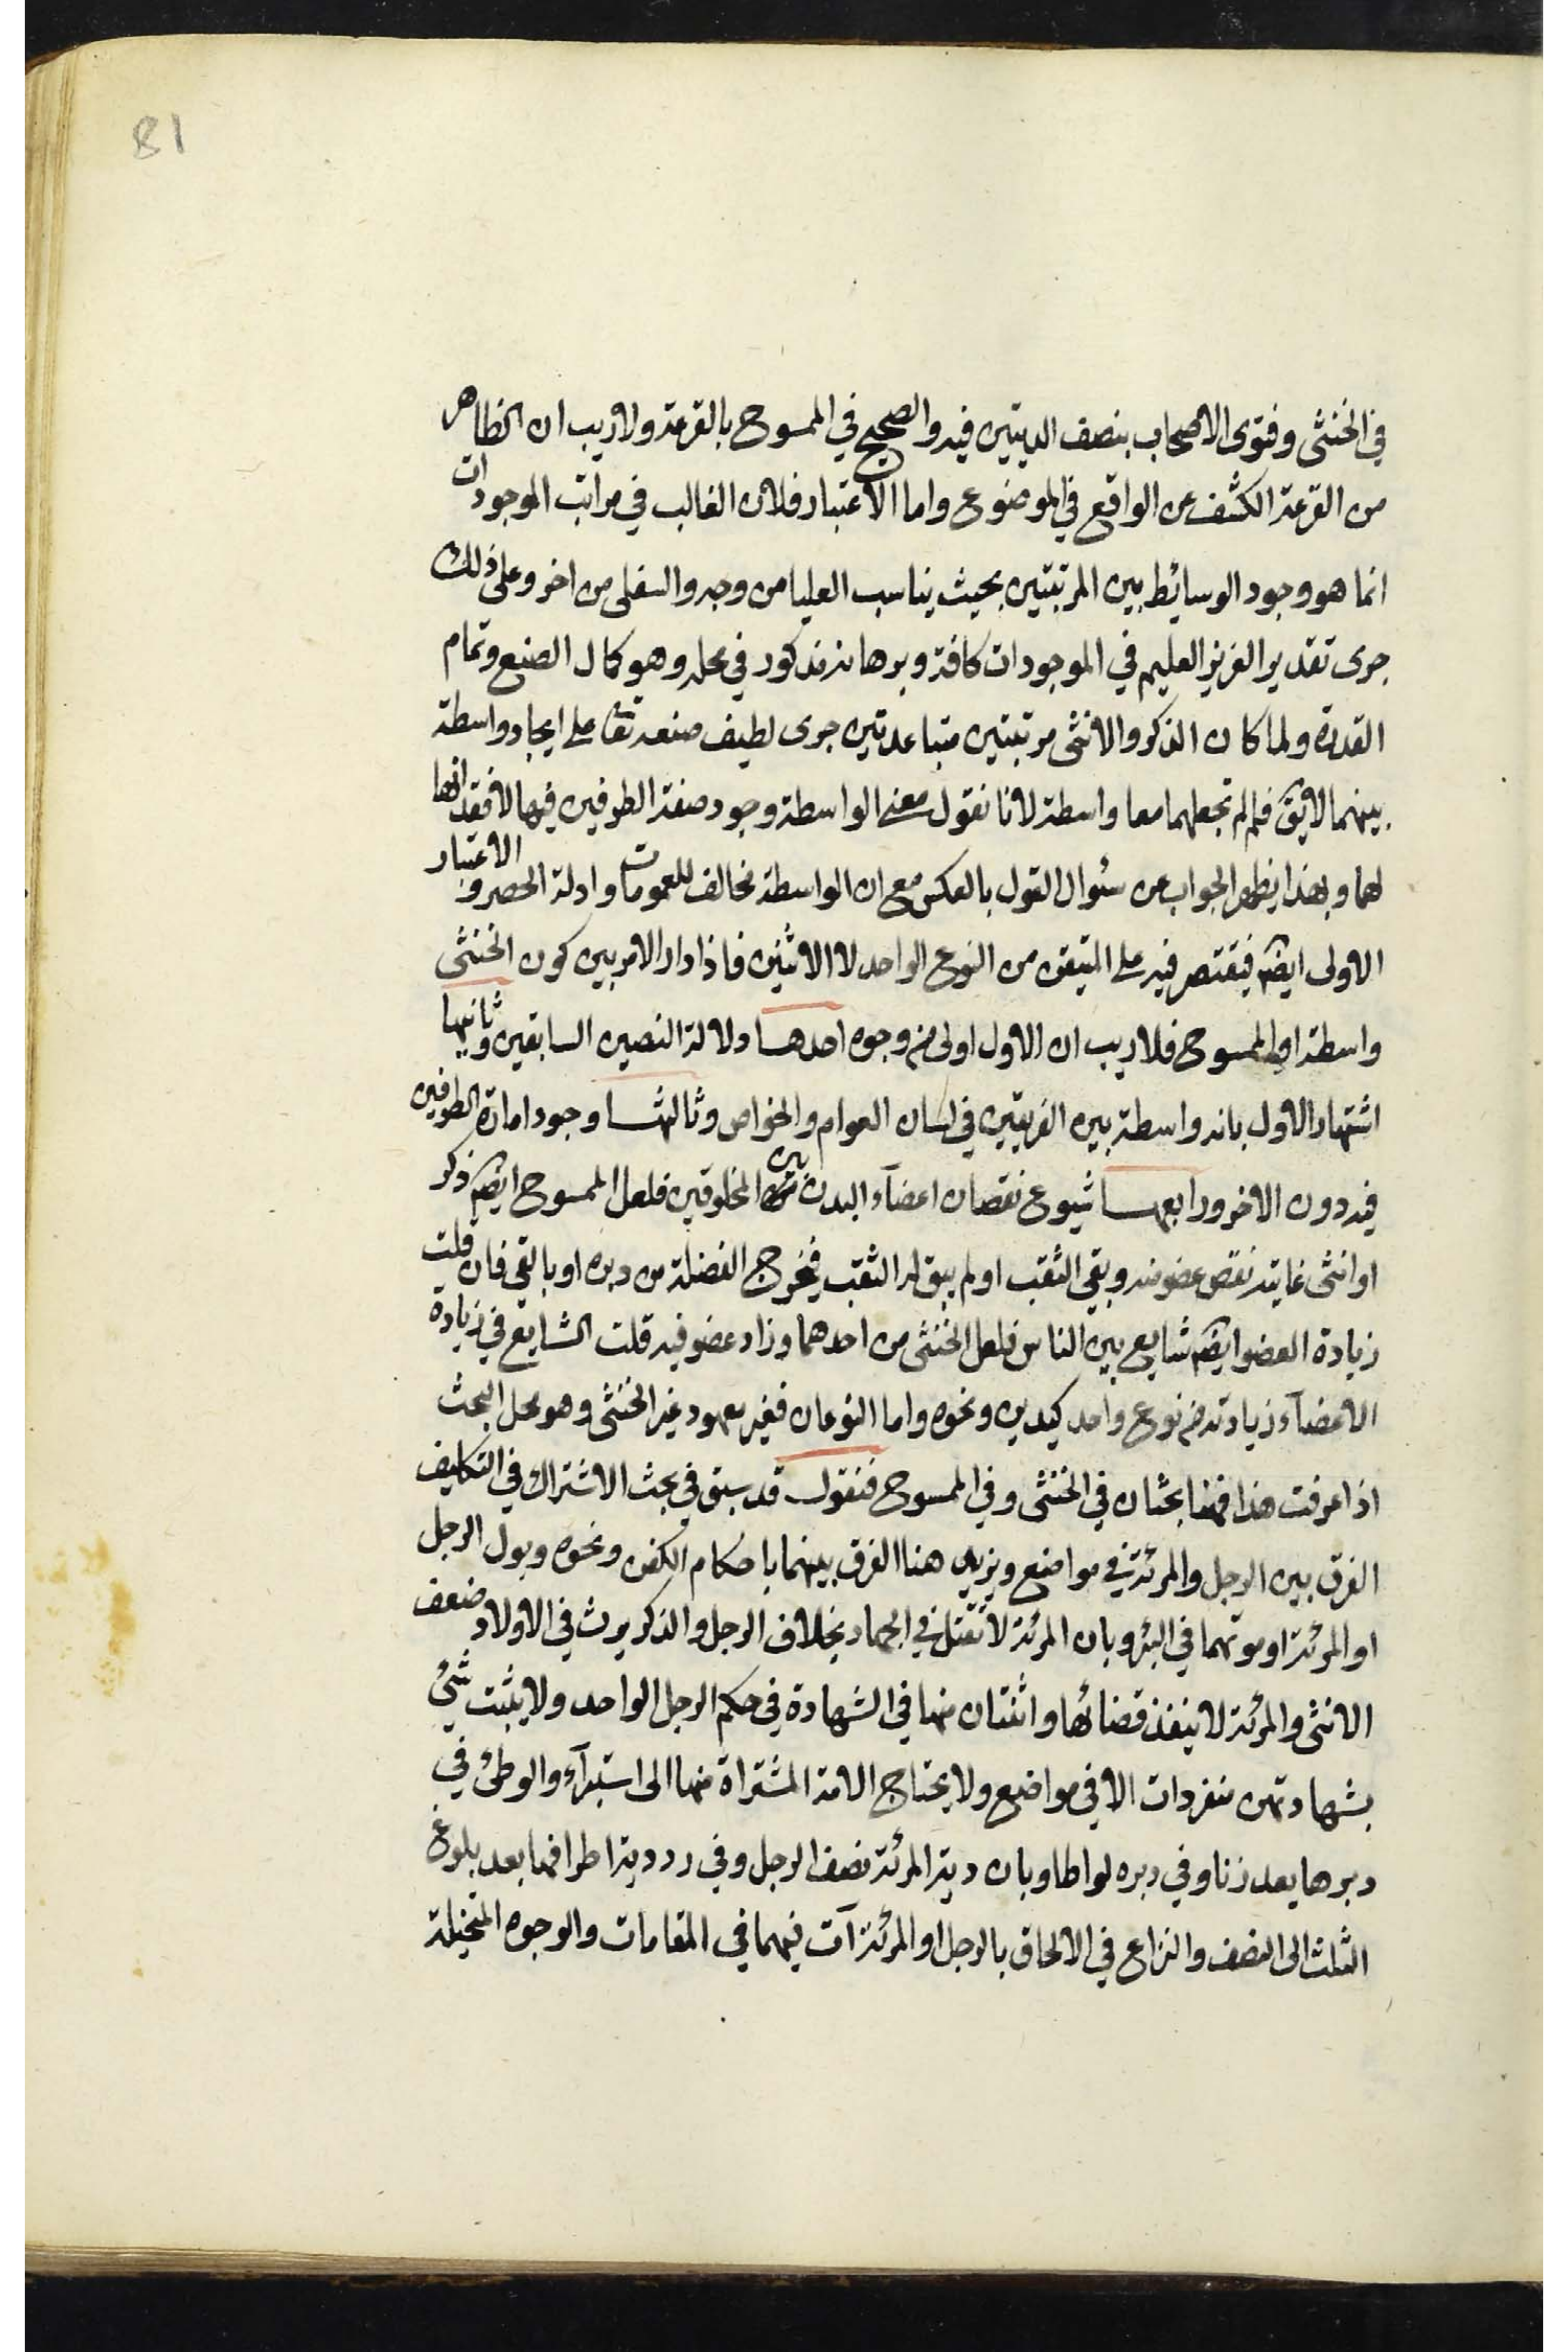 81
في الخنثى وفتوى الاصحاب بنصف الديتين فيه والصحيح في الممسوح بالقرعة ولا ريب ان الظاهر
من القرعة الكشف عن الواقع في الموضوع واما الاعتبار فلان الغالب في مراتب الموجودات
انما هو وجود الوسائط بين المرتبتين بحيث يناسب العليا من وجه والسفلى من اخر وعلى ذلك
جرى تقدير العزيز العليم في الموجودات كافة وبرهانه مذكور في محله وهو كمال الصنع وتمام
القدرة ولما كان الذكر والانثى مرتبتين متباعدتين جرى لطيف صنعه تعا على ايجاد واسطة
بينهما لايق فلم لم تجعلهما معا واسطة لانا نقول معنى الواسطة وجود صفة الطرفين فيها لا فقدانها
لهما وبهذا يظهر الجواب عن سئوال القول بالعكس مع ان الواسطة مخالف للعمومات وادلة الحصر والاعتبار
الاولى ايضا فيقتصر فيه على المتيقن من النوع الواحد لا الاثنين فاذا دار الامر بين كون الخنثى
واسطة او الممسوح فلا ريب ان الاول اولى من وجوه احدها دلالة النصين السابقين وثانيها
اشتهار الاول بانه واسطة بين الفريقين في لسان العوام والخواص وثالثها وجود امارة الطرفين
فيه دون الاخر ورابعها شيوع نقصان اعضآء البدن بين المخلوقين فلعل الممسوح ايضا ذكر
او انثى غايته نقص عضو منه وبقي الثقب او لم يبق له الثقب فيخرج الفضلة من دبره او بالقي فان قلت
زيادة العضو ايضا شايع بين الناس فلعل الخنثى من احدهما وزاد عضو فيه قلت الشايع في زيادة
الاعضآء زيادته من نوع واحد كيدين ونحوه واما النوعان فغير معهود غير الخنثى وهو محل البحث
اذا عرفت هذا فهنا بحثان في الخنثى وفي الممسوح فنقول قد سبق في بحث الاشتراك في التكليف
الفرق بين الرجل والمرئة في مواضع ويزيد هنا الفرق بينهما باحكام الكفن ونحوه وبول الرجل
او المرئة او موتهما في البئر وبان المرئة لا تقتل في الجهاد بخلاف الرجل والذكر يرث في الاولاد ضعف
الانثى والمرئة لا ينفذ قضائها واثنتان منها في الشهادة في حكم الرجل الواحد ولا يثبت شئ
بشهادتهن منفردات الا في مواضع ولا يحتاج الامة المشتراة منها الى استبرآء والوطئ في
دبرها يعد زنا وفي دبره لواطا وبان دية المرئة نصف الرجل وفي رد دية اطرافها بعد بلوغ
الثلث الى النصف والنزاع في الالحاق بالرجل او المرئة آت فيهما في المقامات والوجوه المتخيلة